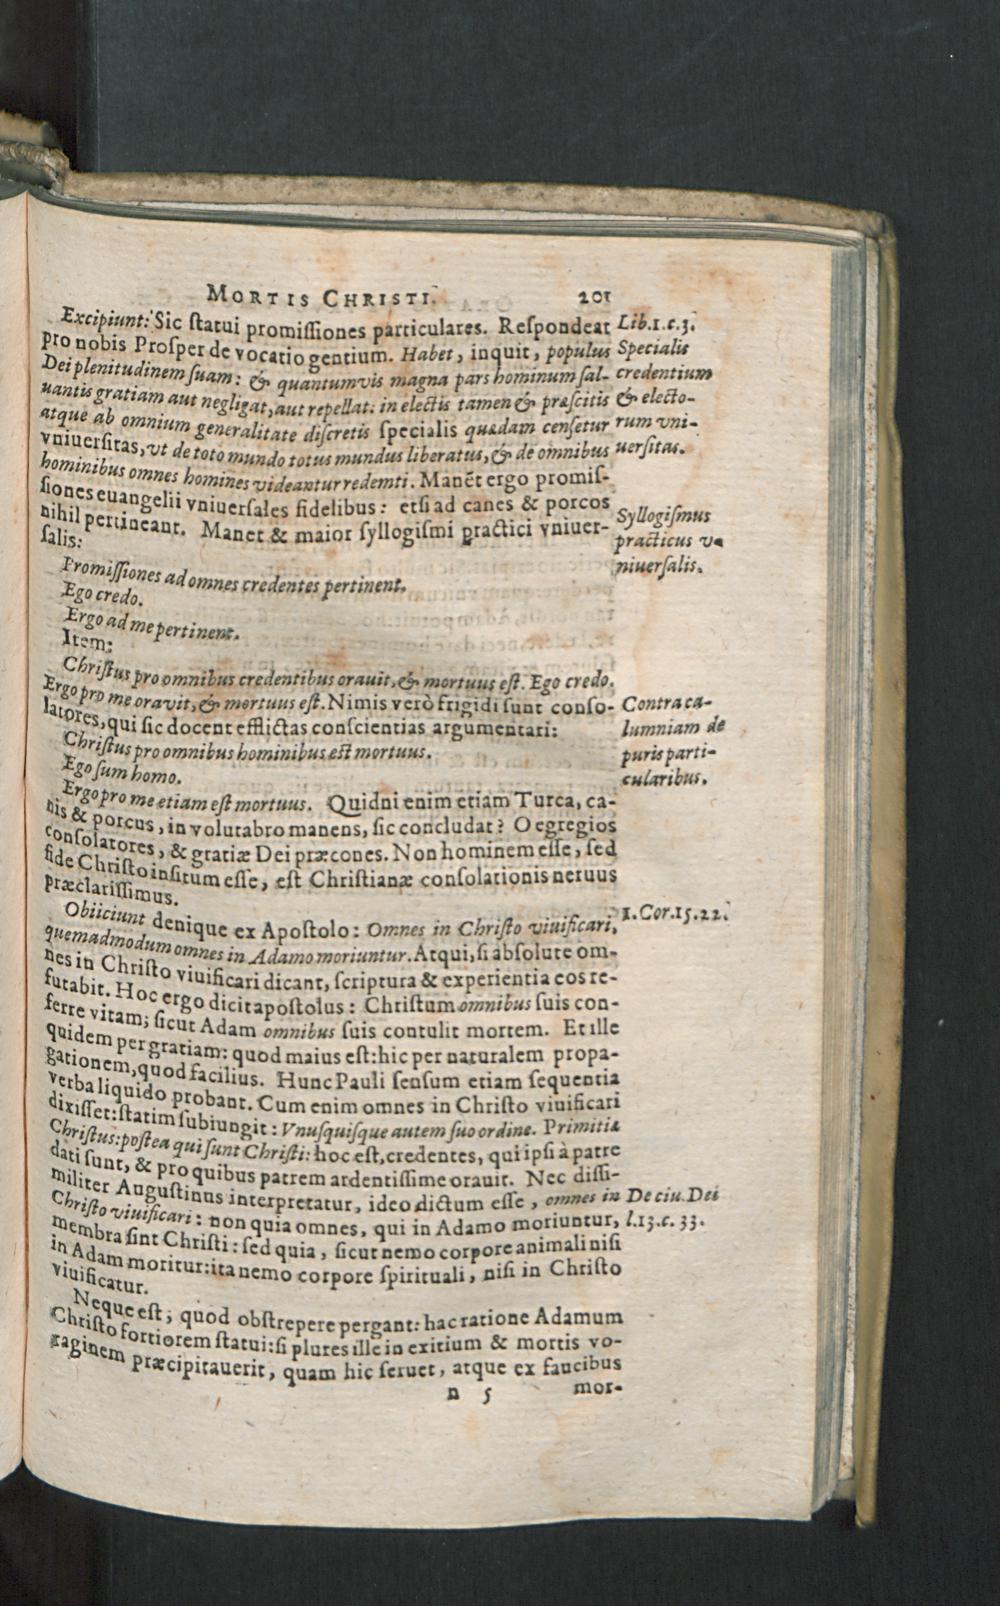 MORTIS CHRISTI. 201
Excipiunt: Sic ſtatui promiſſiones particulares. Reſpondeat
pro nobis Proſper de vocatio gentium. Habet, inquit, populus
Dei plenitudinem ſuam: & quantumvis magna pars hominum ſal-
uantis gratiam aut negligat, aut repellat: in electis tamen & præſcitis
atque ab omnium generalitate diſcretis ſpecialis quædam cenſetur
vniuerſitas, vt de toto mundo totus mundus liberatus, & de omnibus
hominibus omnes homines videantur redemti. Manēt ergo promiſ-
ſiones euangelii vniuerſales fidelibus: etſi ad canes & porcos
nihil pertineant. Manet & maior ſyllogiſmi practici vniuer-
ſalis:
Promiſſiones ad omnes credentes pertinent.
Ego credo.
Ergo ad me pertinent.
Item:
Chriſtus pro omnibus credentibus orauit, & mortuus eſt. Ego credo.
Ergo pro me oravit, & mortuus eſt. Nimis verò frigidi ſunt conſo-
latores, qui ſic docent efflictas conſcientias argumentari:
Chriſtus pro omnibus hominibus est mortuus.
Ego ſum homo.
Ergo pro me etiam eſt mortuus. Quidni enim etiam Turca, ca-
nis & porcus, in volutabro manens, ſic concludat? O egregios
conſolatores, & gratiæ Dei præcones. Non hominem eſſe, ſed
fide Chriſto inſitum eſſe, eſt Chriſtianæ conſolationis neruus
præclariſſimus.
Obiiciunt denique ex Apoſtolo: Omnes in Chriſto viuificari,
quemadmodum omnes in Adamo moriuntur. Atqui, ſi abſolute om-
nes in Chriſto viuificari dicant, ſcriptura & experientia eos re-
futabit. Hoc ergo dicit apoſtolus: Chriſtum omnibus ſuis con-
ferre vitam; ſicut Adam omnibus ſuis contulit mortem. Et ille
quidem per gratiam: quod maius eſt: hic per naturalem propa-
gationem, quod facilius. Hunc Pauli ſenſum etiam ſequentia
verba liquido probant. Cum enim omnes in Chriſto viuificari
dixiſſet: ſtatim ſubiungit: Vnuſquiſque autem ſuo ordine. Primitiæ
Chriſtus: poſtea qui ſunt Chriſti: hoc eſt, credentes, qui ipſi à patre
dati ſunt, & pro quibus patrem ardentiſſime orauit. Nec diſſi-
militer Auguſtinus interpretatur, ideo dictum eſſe, omnes in
Chriſto viuificari: non quia omnes, qui in Adamo moriuntur,
membra ſint Chriſti: ſed quia, ſicut nemo corpore animali niſi
in Adam moritur: ita nemo corpore ſpirituali, niſi in Chriſto
viuificatur.
Neque eſt, quod obſtrepere pergant: hac ratione Adamum
Chriſto fortiorem ſtatui: ſi plures ille in exitium & mortis vo-
raginem præcipitauerit, quam hic ſeruet, atque ex faucibus
n 5 mor-
Lib.1.c.3.
Specialis
credentium
& electo-
rum vni-
uerſitas.
Syllogiſmus
practicus v-
niuerſalis.
Contra ca-
lumniam de
puris parti-
cularibus.
1.Cor.15.22.
De ciu. Dei
l.13.c.33.